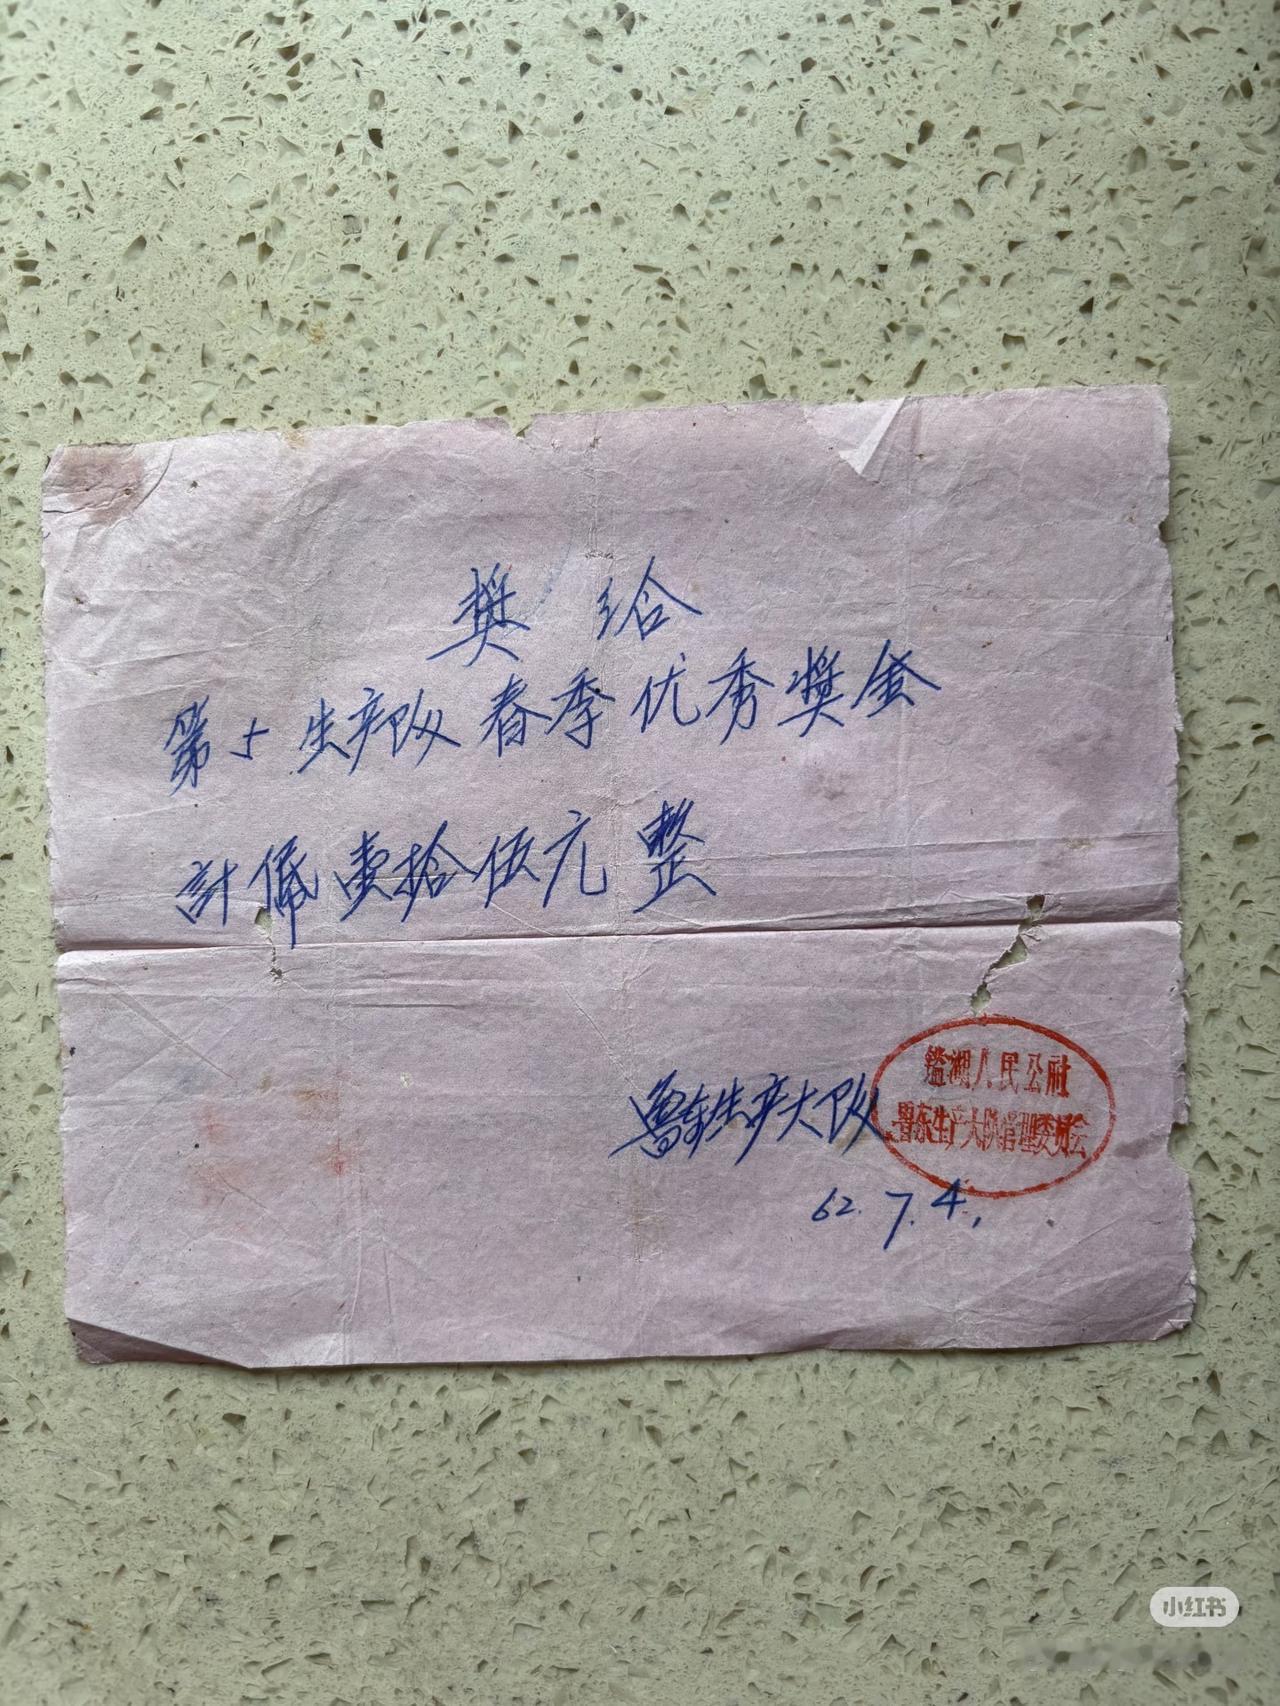 奖给
第5生产队春季优秀奖金
計佩壹拾伍元整
鲁东生产大队
鑑湖人民公社
鲁东生产大队管理委员会
62.7.4,
小红书